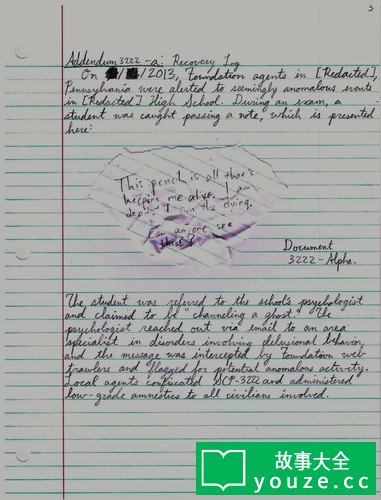 5
Addendum 3222-a: Recovery Log
On / /2013, Foundation agents in [Redacted],
Pennsylvania were alerted to seemingly anomalous events
in [Redacted] High School. During an exam, a
student was caught passing a note, which is presented
here:
This pencil is all that's
keeping me alive. I am
dead. I am the dying.
Can anyone see
this?
Document
3222-Alpha.
The student was referred to the school's psychologist
and claimed to be "channeling a ghost." The
psychologist reached out via email to an area
specialist in disorders involving delusional behavior,
and the message was intercepted by Foundation web-
crawlers and flagged for potential anomalous activity.
Local agents confiscated SCP-3222 and administered
low-grade amnestics to all civilians involved.
故事大全
youze.cc